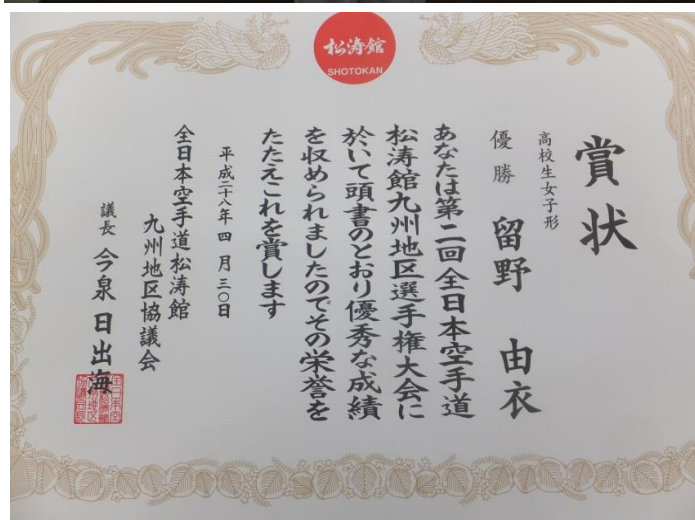 松涛館
SHOTOKAN
賞状
高校生女子形
優勝 留野 由衣
あなたは第二回全日本空手道
松涛館九州地区選手権大会に
於いて頭書のとおり優秀な成績
を収められましたのでその栄誉を
たたえこれを賞します
平成二十八年 四 月 三〇日
全日本空手道松涛館
九州地区協議会
議長 今泉 日出海